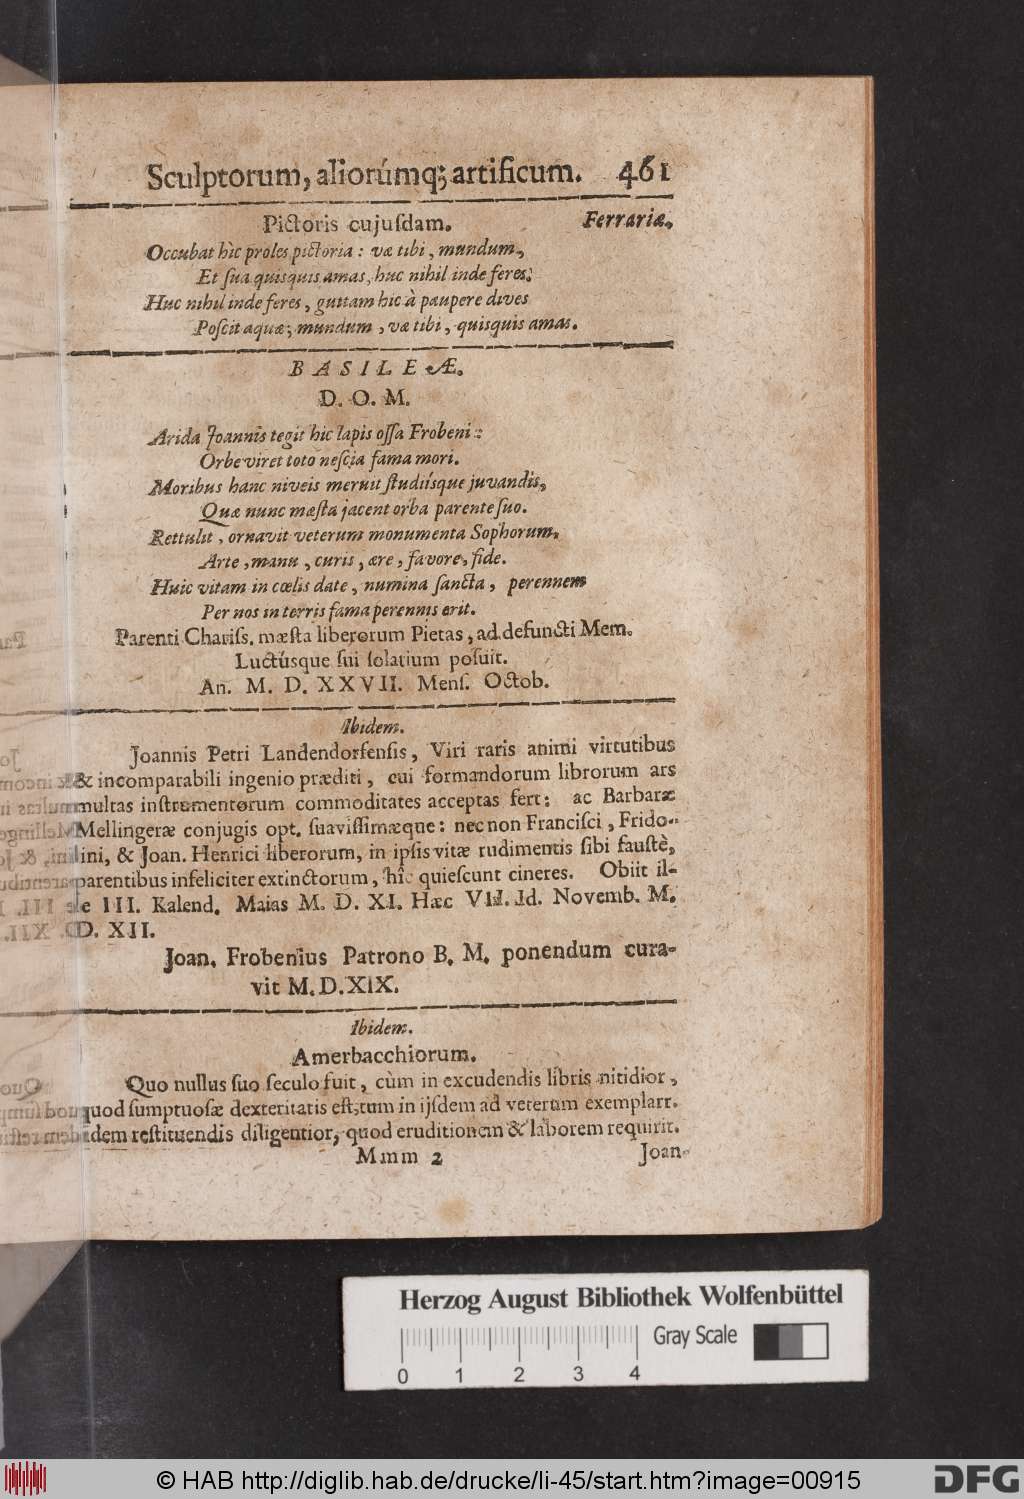 Sculptorum, aliorúmq; artificum. 461
Pictoris cujuſdam. Ferrariæ,
Occubat hìc proles pictoria: væ tibi, mundum,
Et ſua quisquis amas, huc nihil inde feres;
Huc nihil inde feres, guttam hic à paupere dives
Poſcit aquæ; mundum, væ tibi, quisquis amas.
BASILEÆ.
D. O. M.
Arida Joannis tegit hic lapis oſſa Frobeni:
Orbe viret toto neſcia fama mori.
Moribus hanc niveis meruit ſtudiísque juvandis,
Quæ nunc mæſta jacent orba parente ſuo.
Rettulit, ornavit veterum monumenta Sophorum,
Arte, manu, curis, ære, favore, fide.
Huic vitam in cœlis date, numina ſancta, perennem
Per nos in terris fama perennis erit.
Parenti Chariſs. mæſta liberorum Pietas, ad defuncti Mem.
Luctúsque ſui ſolatium poſuit.
An. M. D. XXVII. Menſ. Octob.
Ibidem.
Joannis Petri Landendorfenſis, Viri raris animi virtutibus
& incomparabili ingenio præditi, cui formandorum librorum ars
multas inſtrumentorum commoditates acceptas fert: ac Barbaræ
Mellingeræ conjugis opt. ſuaviſſimæque: nec non Franciſci, Frido-
lini, & Joan. Henrici liberorum, in ipſis vitæ rudimentis ſibi fauſtè,
parentibus infeliciter extinctorum, hîc quieſcunt cineres. Obiit il-
le III. Kalend. Maias M. D. XI. Hæc VIII. Id. Novemb. M.
D. XII.
Joan. Frobenius Patrono B. M. ponendum cura-
vit M. D. XIX.
Ibidem.
Amerbacchiorum.
Quo nullus ſuo ſeculo fuit, cùm in excudendis libris nitidior,
quod ſumptuoſæ dexteritatis eſt, tum in ijſdem ad veterum exemplarr.
fidem reſtituendis diligentior, quod eruditionem & laborem requirit.
Mmm 2 Joan-
Herzog August Bibliothek Wolfenbüttel
Gray Scale
0 1 2 3 4
© HAB http://diglib.hab.de/drucke/li-45/start.htm?image=00915
DFG